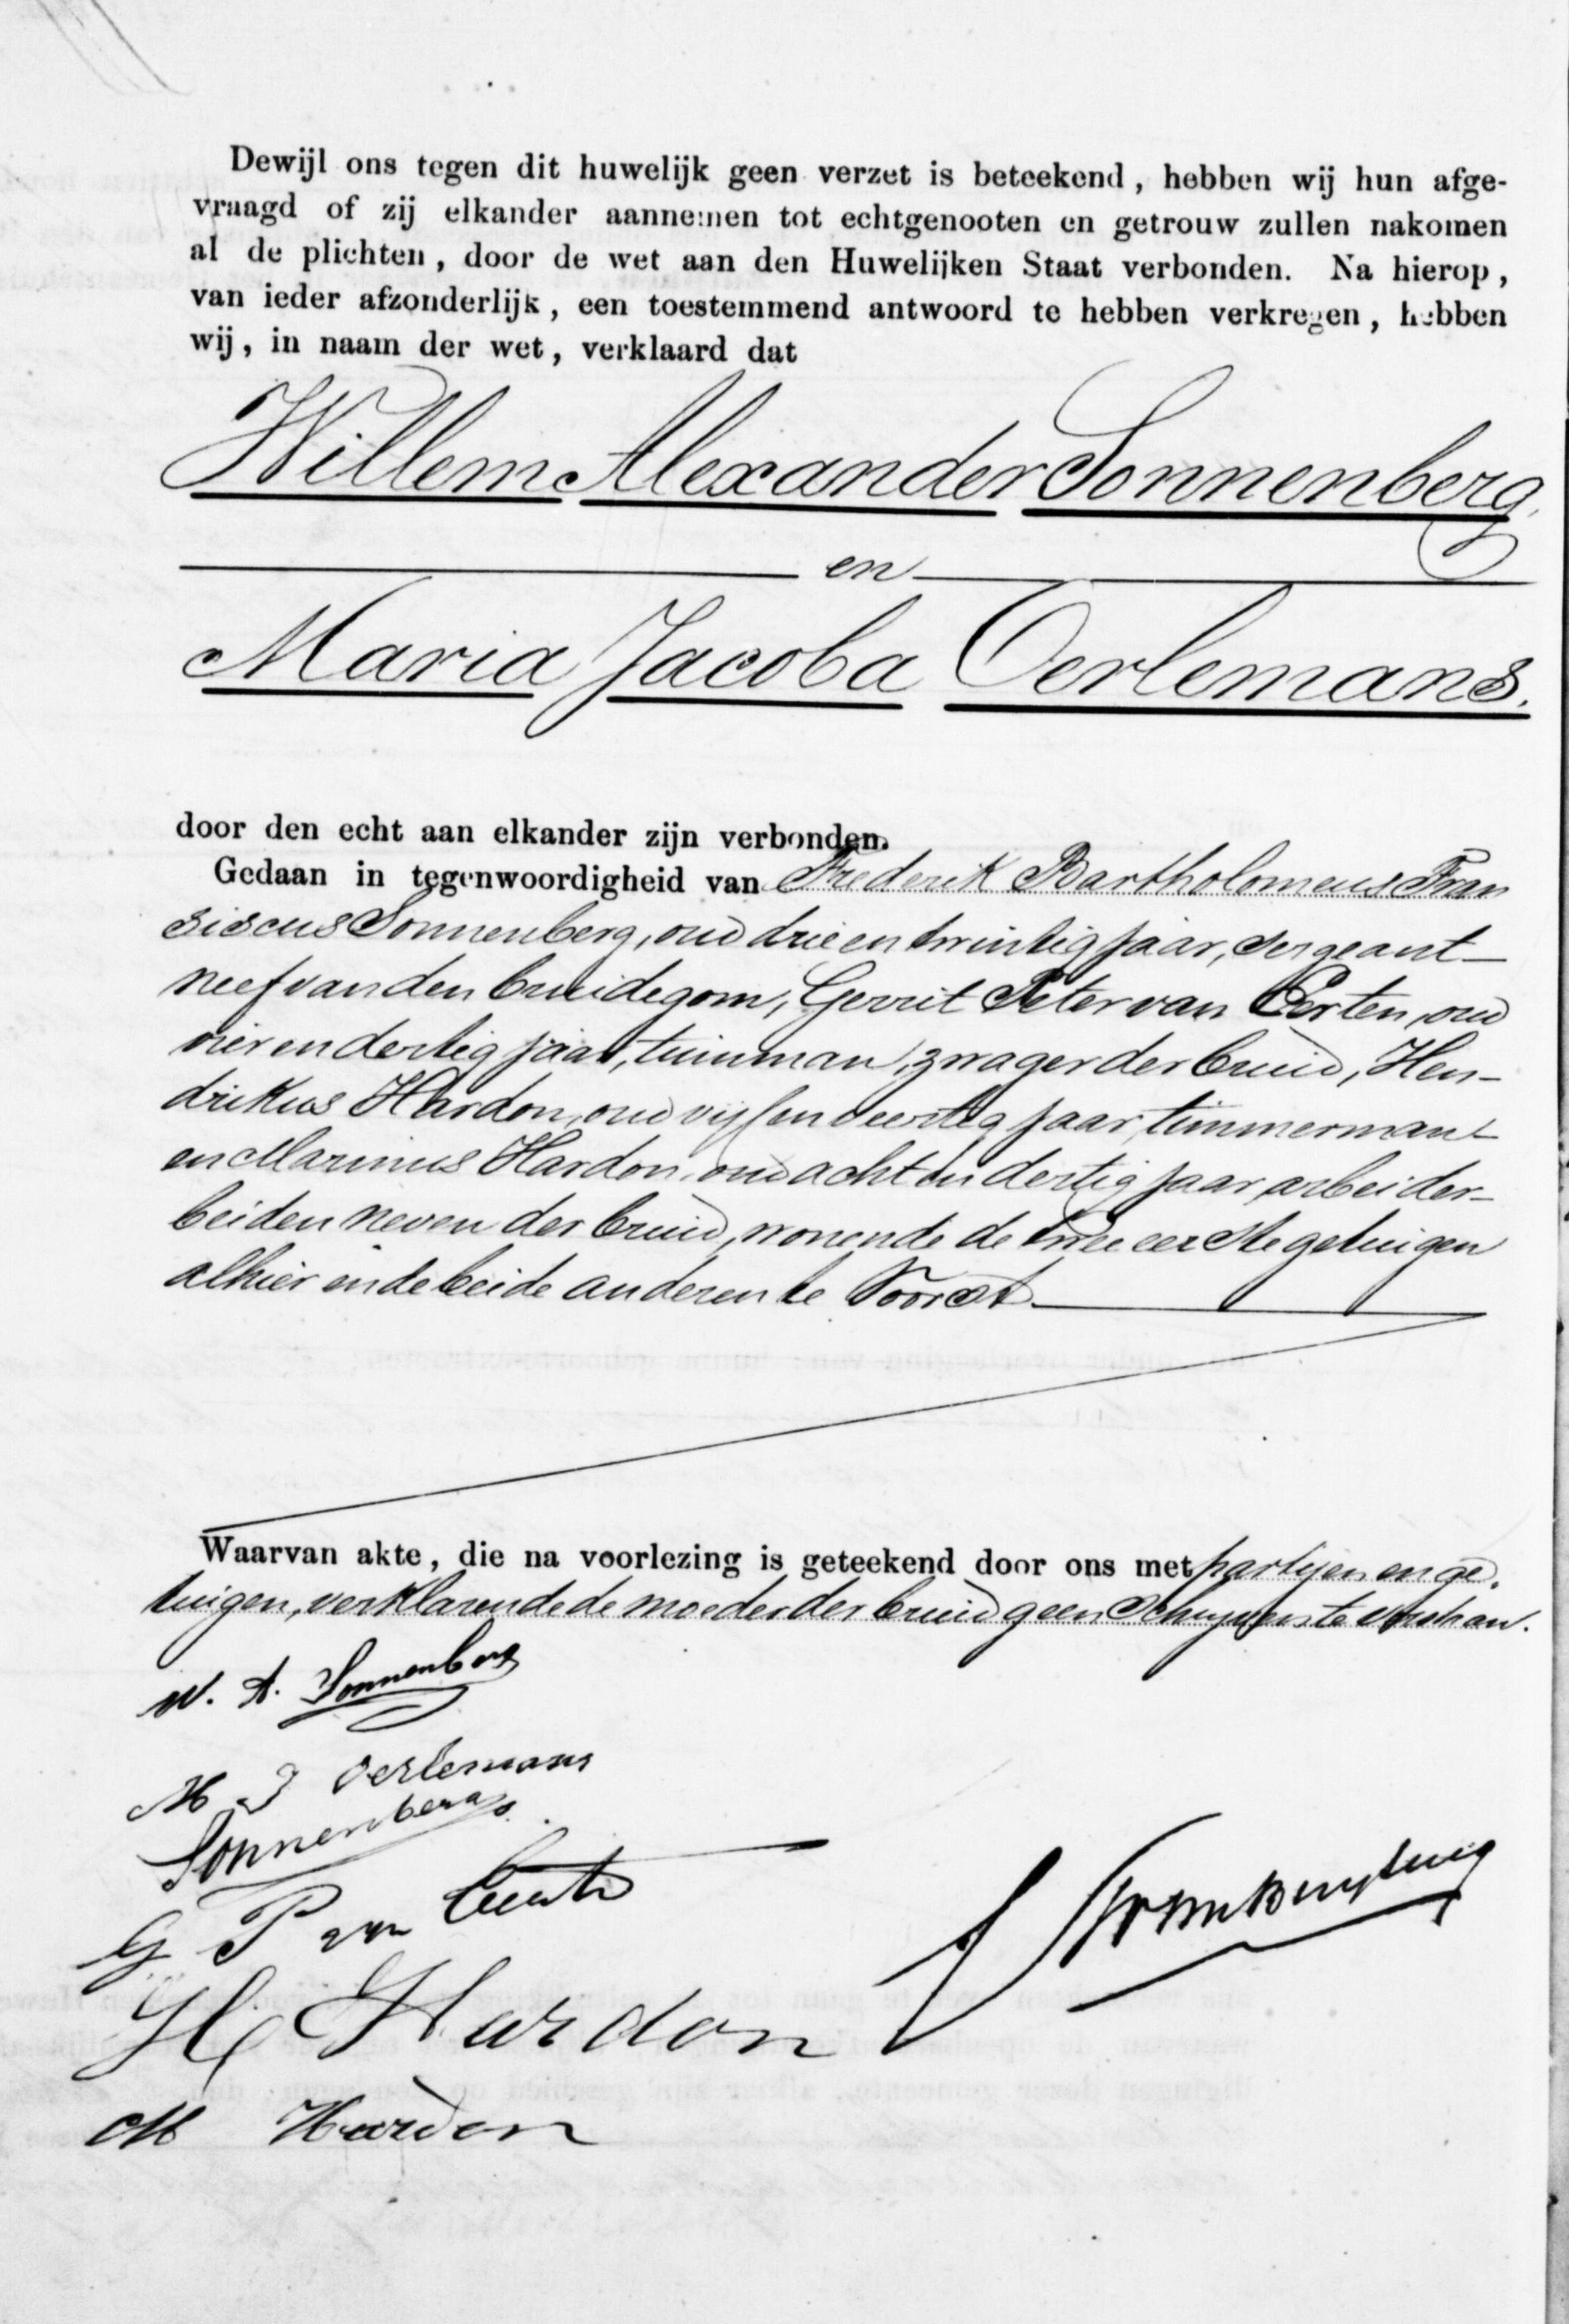 Dewijl ons tegen dit huwelijk geen verzet is beteekend, hebben wij hun afge-
vraagd of zij elkander aannemen tot echtgenooten en getrouw zullen nakomen
al de plichten, door de wet aan den Huwelijken Staat verbonden. Na hierop,
van ieder afzonderlijk, een toestemmend antwoord te hebben verkregen, hebben
wij, in naam der wet, verklaard dat
Willem Alexander Sonnenberg,
en
Maria Jacoba Oerlemans.
door den echt aan elkander zijn verbonden.
Gedaan in tegenwoordigheid van Frederik Bartholomeus Fran
siscus Sonnenberg, oud drie en twintig jaar, sergeant
neef van den bruidegom, Gerrit Peter van Eerten, oud
vier en dertig jaar, tuinman, zwager der bruid, Hen-
drikus Hardon, oud vijf en veertig jaar, timmerman
en Marinus Hardon, oud acht en dertig jaar, arbeider
beiden neven der bruid, wonende de twee eerste getuigen
alhier en de beide anderen te Voorst
Waarvan akte, die na voorlezing is geteekend door ons met partijen en ge-
tuigen, verklarende de moeder der bruid geen schrijvens te verstaan.
W. A. Sonnenberg
M J Oerlemans
Sonnenberg
G P van
H Hardon
M Hardon